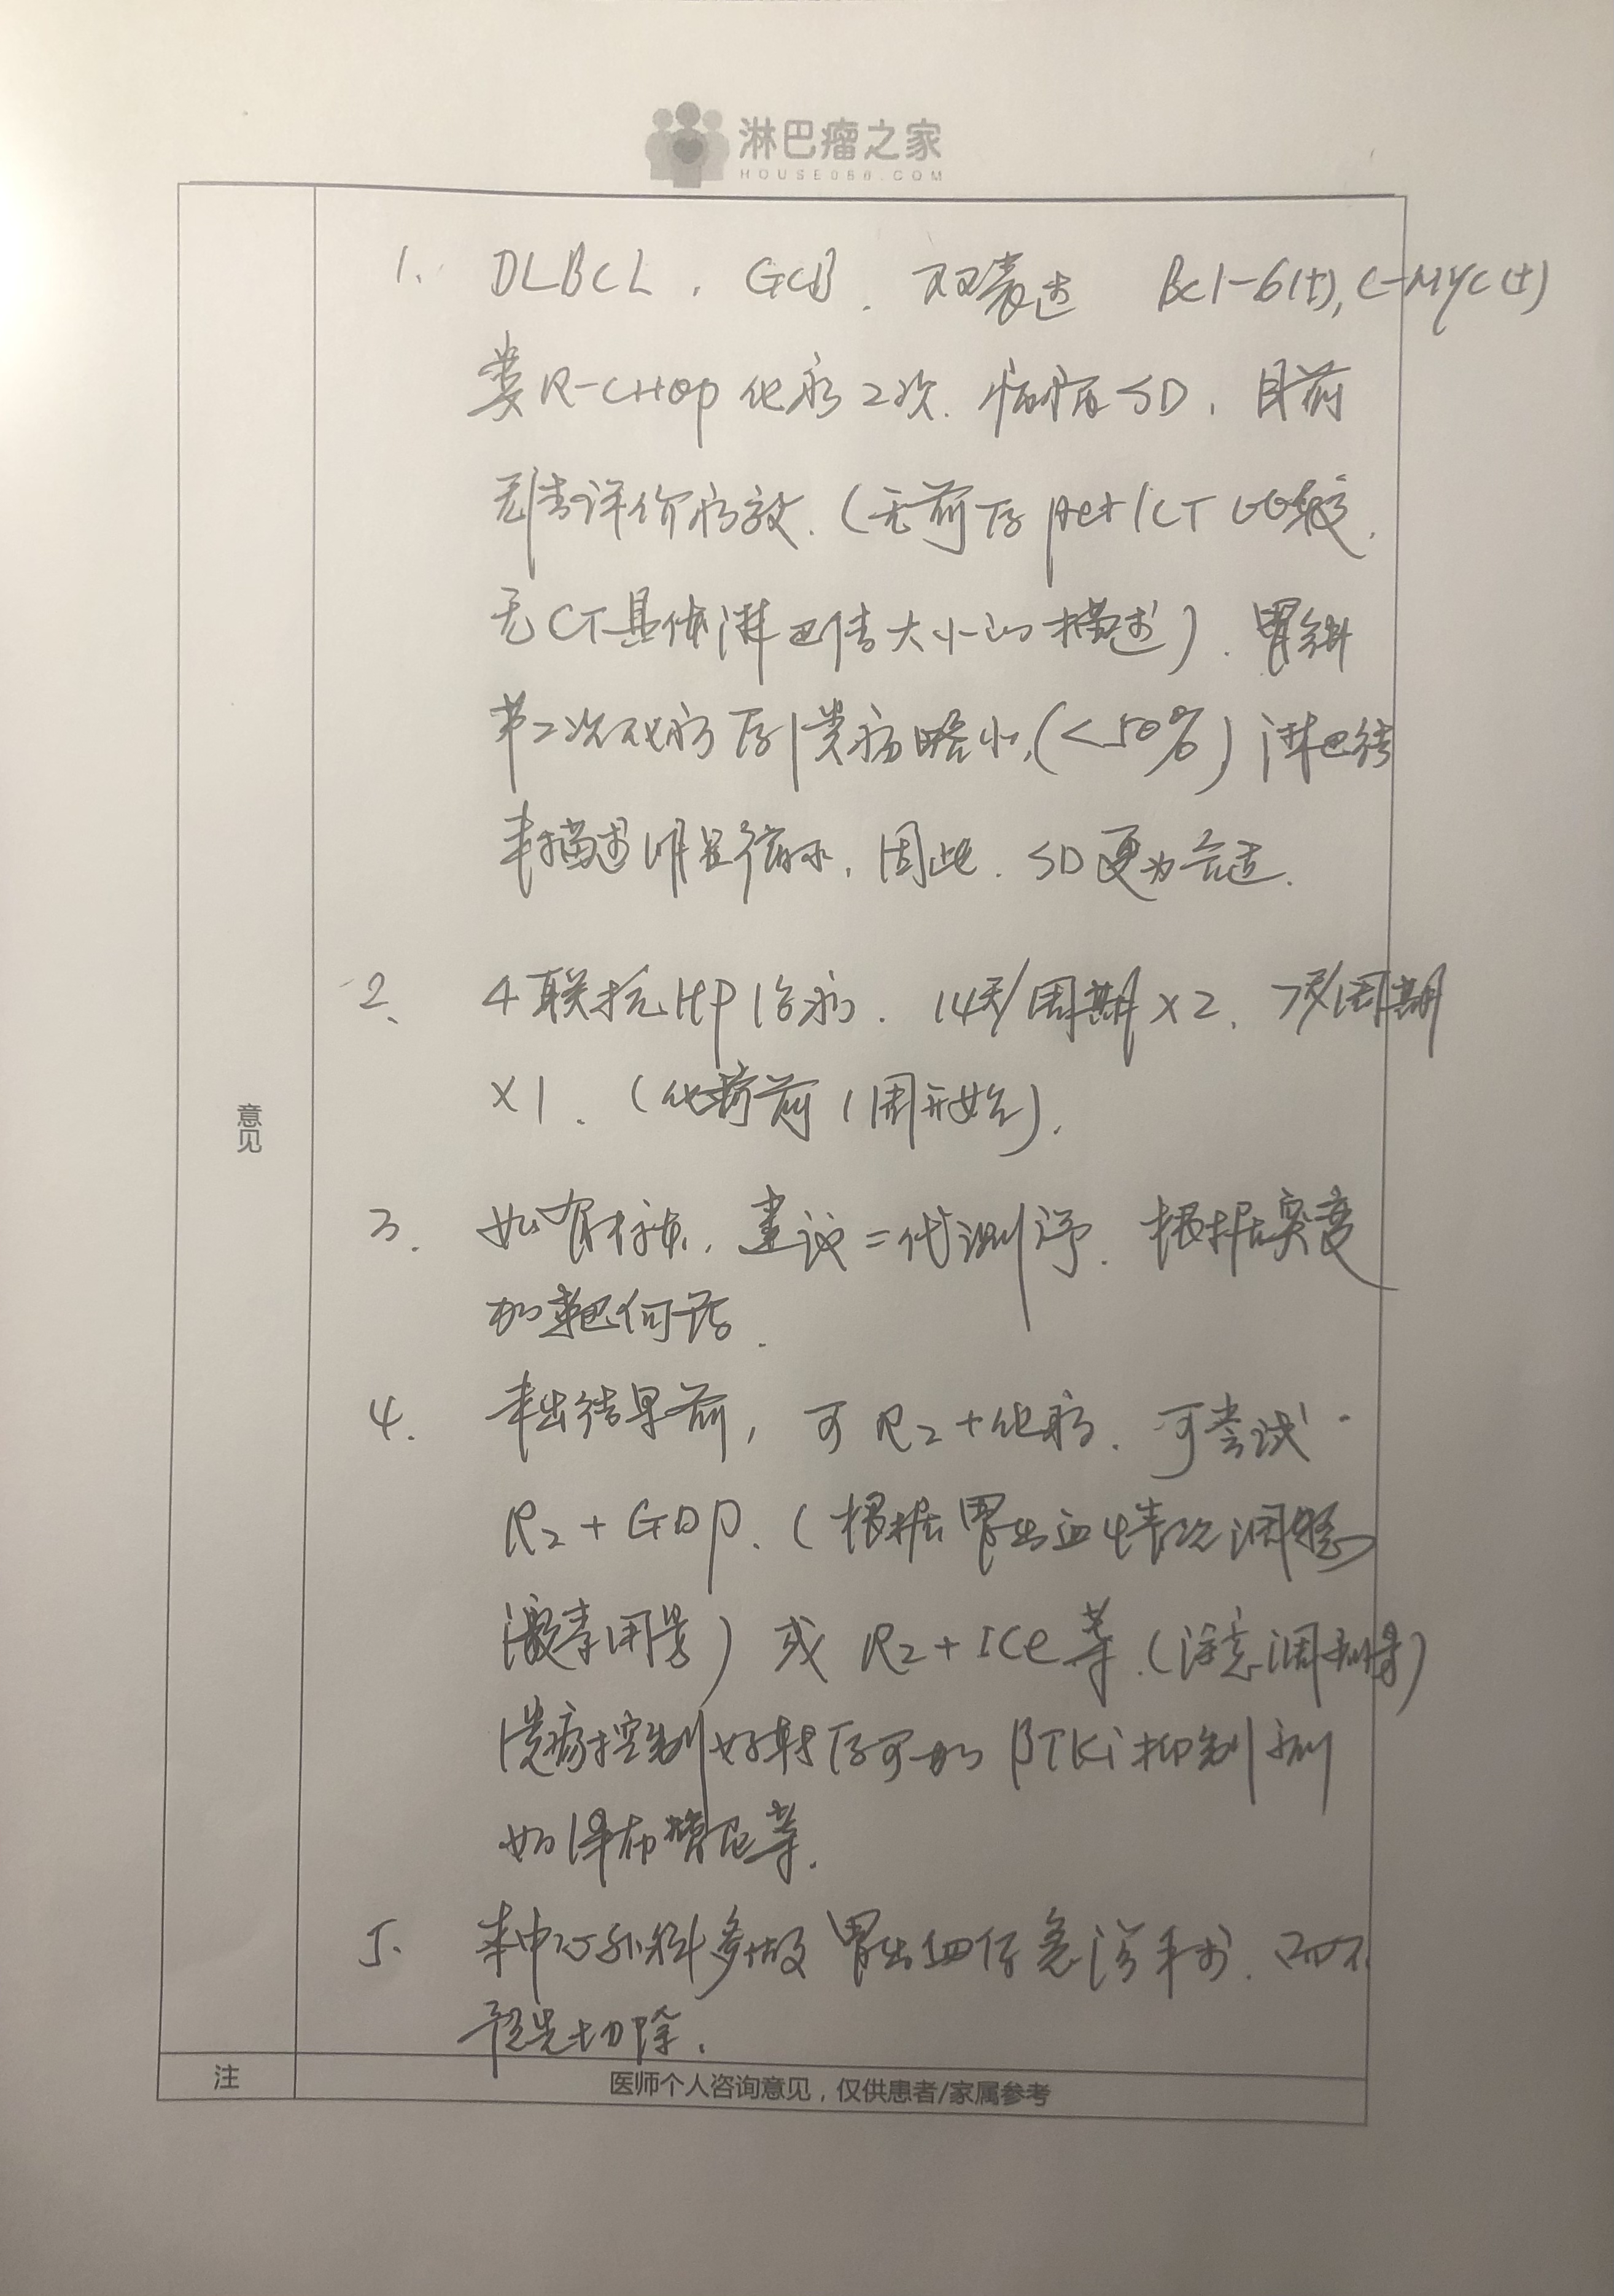 淋巴瘤之家
HOUSE086.COM
意见
1. DLBCL, GCB, 双表达 Bcl-6(+), C-MYC(+)
类R-CHOP 化疗2次. 病情SD, 目前
无法评价疗效. (无前后 pet/CT 比较.
无CT具体淋巴结大小的描述). 胃镜
第二次化疗后溃疡略小,(<50%) 淋巴结
未描述明显缩小, 因此, SD更为合适.
2. 4联抗HP治疗. 14天/周期×2, 7天/周期
×1. (化疗前1周开始).
3. 如有标本, 建议二代测序. 根据突变
加靶向药.
4. 未出结果前, 可R2+化疗. 可尝试
R2+GDP. (根据胃出血情况调整
激素用量) 或 R2+ICE等.(注意调剂量)
溃疡控制好转后可加 BTKi抑制剂
如泽布替尼等.
5. 本中心外科多做胃出血后急诊手术. 而不
预先切除.
注
医师个人咨询意见，仅供患者/家属参考